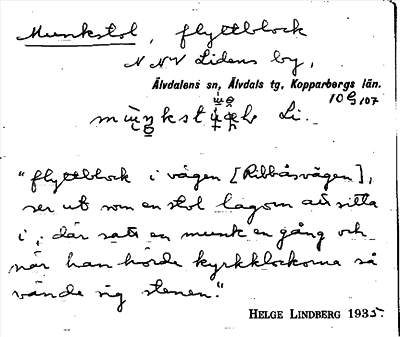 Munkstol, flyttblock
N N V Lidens by,
Älvdalens sn, Älvdals tg, Kopparbergs län.
10 G 107
Li.
"flyttblock i vägen [Ribbåsvägen],
ser ut som en stol lagom att sitta
i; där satt en munk en gång och
när han hörde kyrkklockorna så
vände sig stenen."
HELGE LINDBERG 1935.